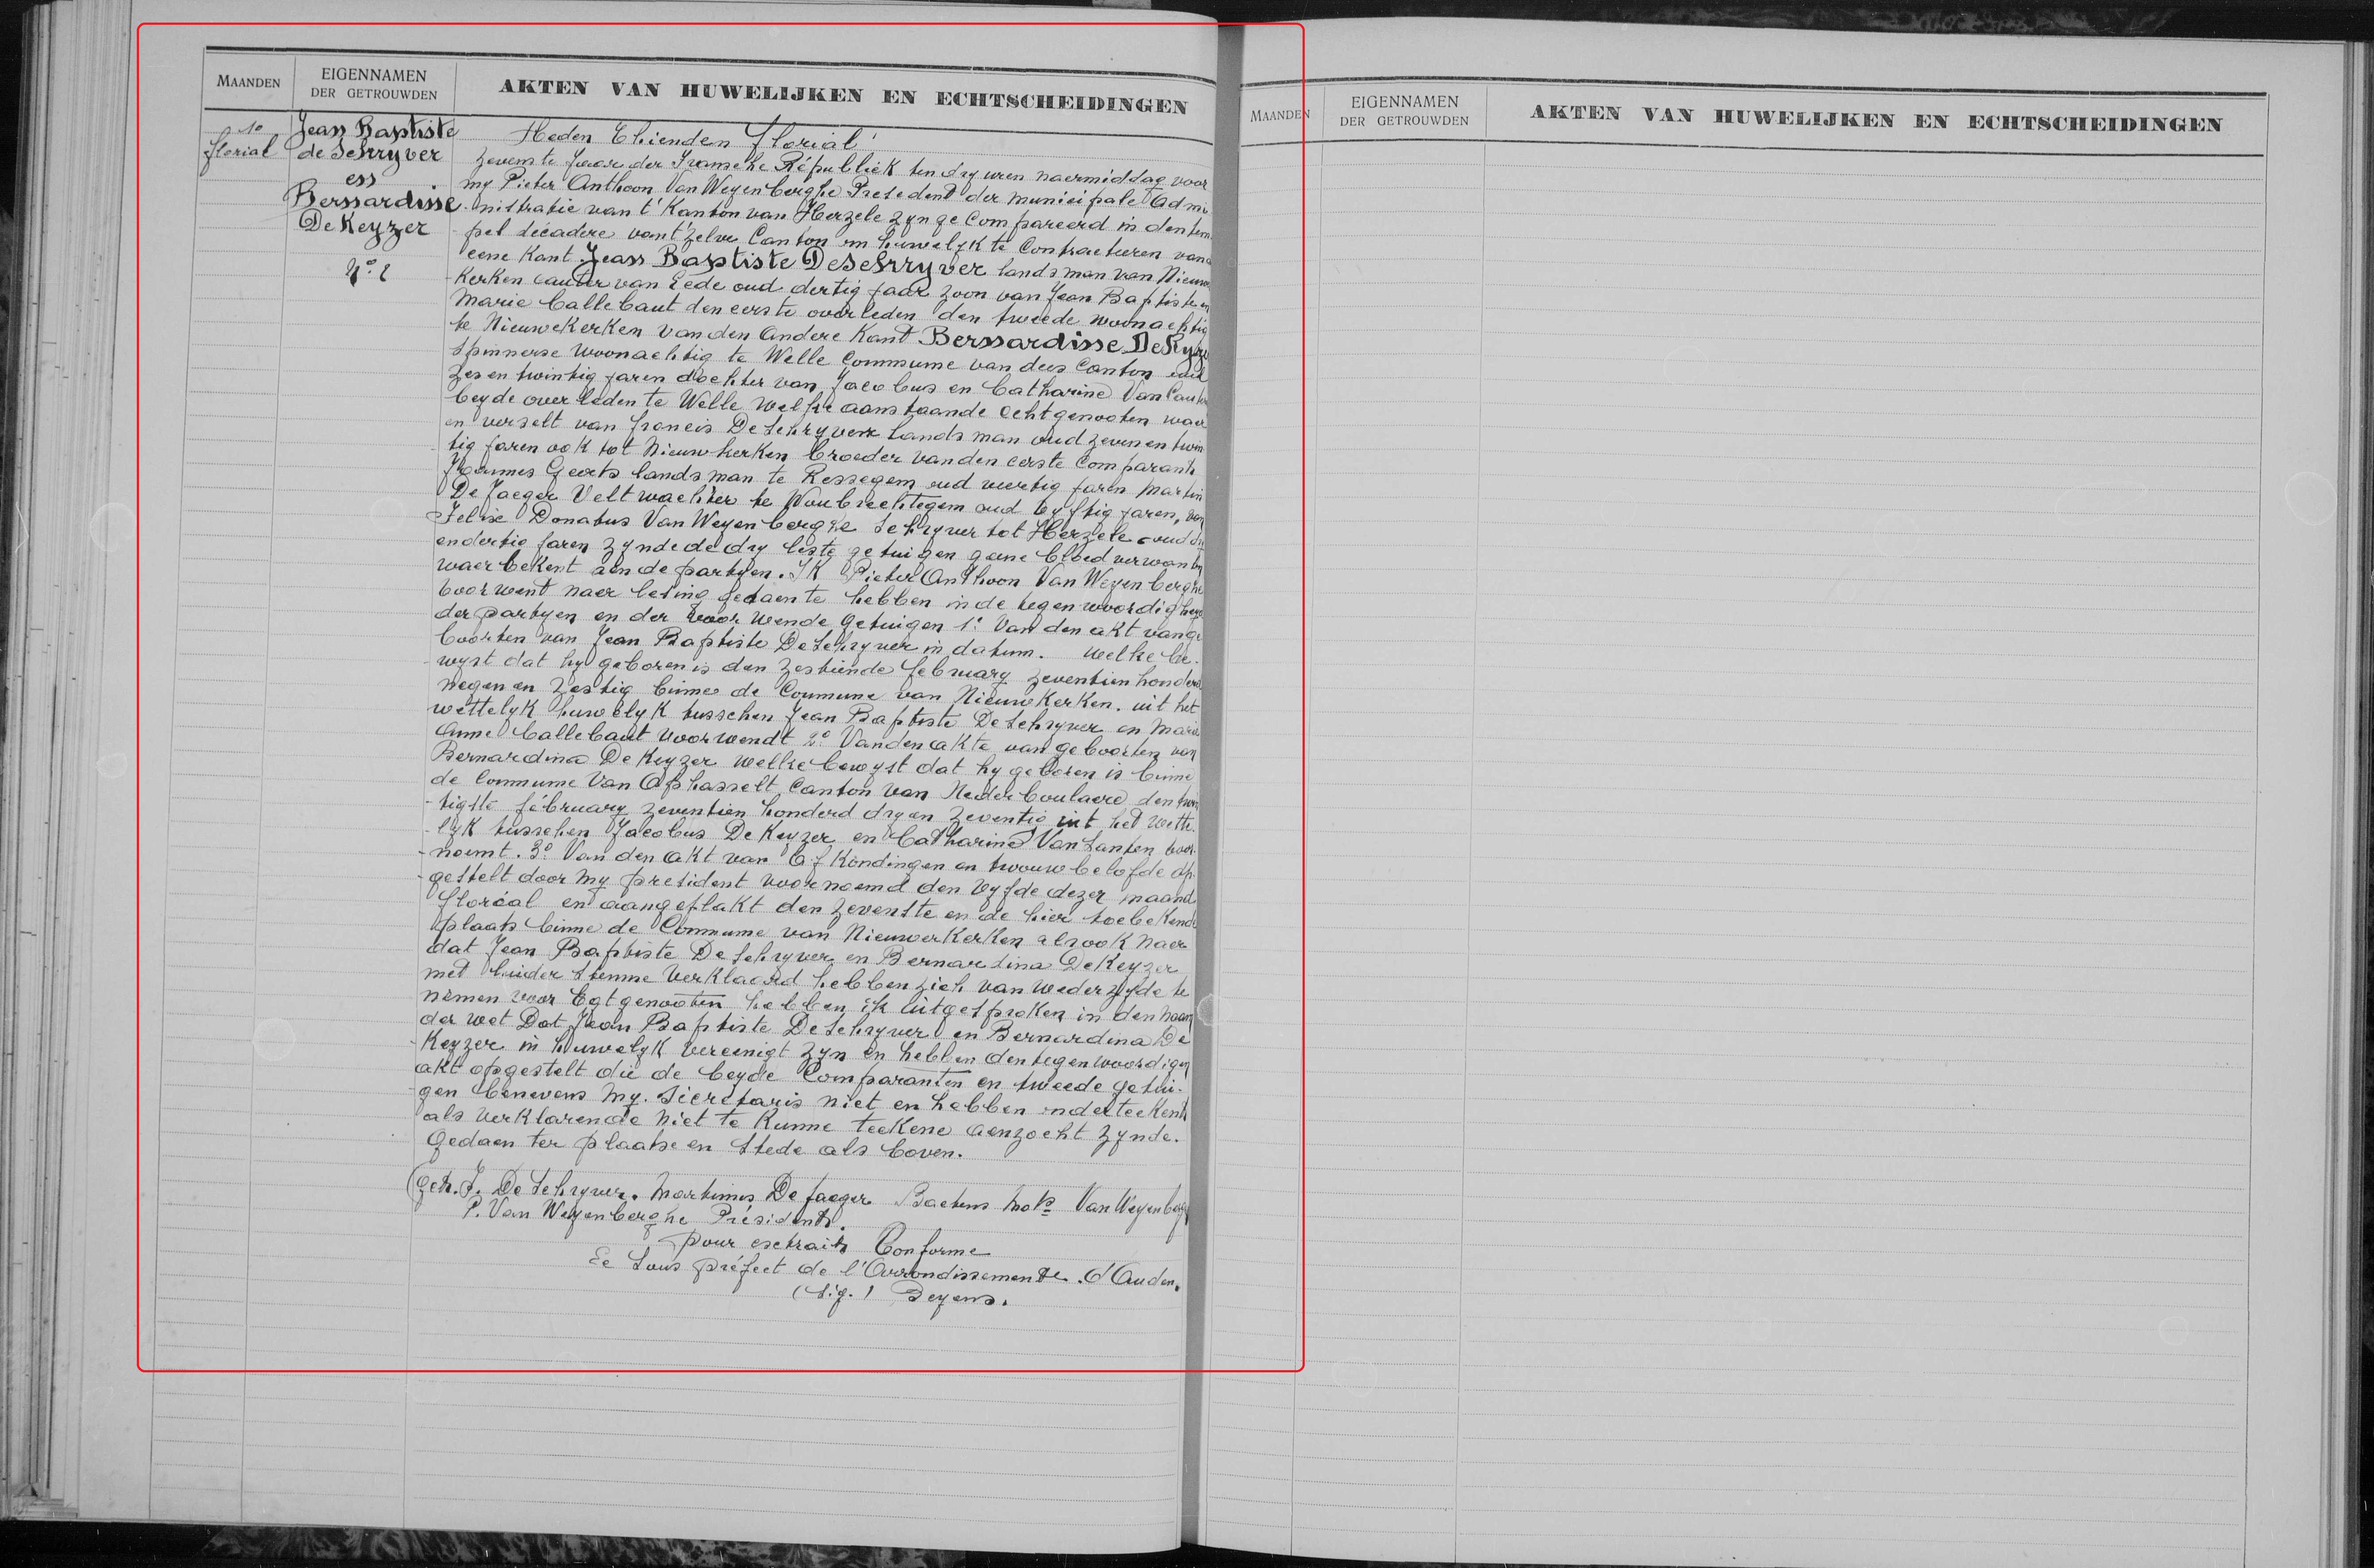 MAANDEN
EIGENNAMEN
DER GETROUWDEN
AKTEN VAN HUWELIJKEN EN ECHTSCHEIDINGEN
10
florial
Jean Baptiste
de Schryver
en
Bernardine
De Keyzer
N° 2
Heden Thienden florial
Zevenste Jaar der Fransche Républiek ten dry uren naermiddag voor
my Pieter Anthoon Van Weyenberghe President der municipale Admi
nistratie van t' Kanton van Herzele zyn gecompareerd in den tem
pel décadere vant zelve Canton om huwelyk te Contracteeren vand
eene Kant Jean Baptiste De Schryver landsman van Nieuw
Kerken canter van Lede oud dertig jaar zoon van Jean Baptiste en
Marie Callebaut den eerste overleden den tweede woonachtig
te Nieuwekerken van den Andere Kant Bernardine De Kyze
Spinnerse woonachtig te Welle Commune van dees Canton oud
Zes en twintig jaren dochter van Jacobus en Catharine Van Caute
beyde overleden te Welle welke aanstaande echtgenooten waer
en verselt van francis De Schryver Landsman oud zeven en twin
tig jaren ook tot Nieuwkerken broeder vanden eerste Comparant
Joannes Geerts landsman te Ressegem oud veertig jaren Martin
De Jaeger Veltwachter te Woubrechtegem oud vyftig jaren, van
Felixe Donatus Van Weyenberghe Schryver tot Herzele oud dry
endertig jaren zynde de dry leste getuigen geene bloedverwanten
waer bekent aen de partyen. Ik Pieter Anthoon Van Weyenberghe
voorwent naer lesing gedaen te hebben in de tegenwoordighey
der partyen en der voorwende getuigen 1° Van den akt van ge
boorten van Jean Baptiste De Schryver in datum. welke be-
wyst dat hy geboren is den zestiende february zeventien honderd
negen en zestig binne de Commune van Nieuwkerken. uit het
wettelyk huwelyk tusschen Jean Baptiste De Schryver en Marie
Anne Callebaut voorwendt 2° Vanden akte van geboorten van
Bernardina De Keyzer welke bewyst dat hy geboren is binne
de Commune Van Ophasselt Canton van Nederboulaere den twin
tigste fébruary zeventien honderd dry en zeventig uit het wette-
lyk tusschen Jacobus De Keyzer en Catharine Van Santen voor-
noemt. 3° Van den Akt van Afkondingen en trouwbelofde op-
gestelt door my président voornoemd den vyfde dezer maand
floréal en aangeplakt den zevenste en de hier toebekende
plaats binne de Commune van Nieuwerkerken alsook naer
dat Jean Baptiste De Schryver en Bernardina De Keyzer
met luider stemme verklaard hebben zich van wederzyde te
nemen voor Egtgenooten hebben ik uitgesproken in den naam
der wet Dat Jean Baptiste De Schryver en Bernardina De
Keyzer in huwelyk vereenigt zyn en hebben den tegenwoordigen
akt opgestelt die de beyde Comparanten en tweede getui-
gen benevens my. Siecretaris niet en hebben onderteekent
als verklarende niet te kunne teekene aenzocht zynde.
Gedaen ter plaatse en stede als boven.
(Get. J. De Schryver. Martinus De Jaeger Baetens Van Weyenberg
P. Van Weyenberghe Président.
pour extrait Conforme
Le Sous préfect de l'Arrondissemente d'Auden.
(Sig.) Deyens.
MAANDEN
EIGENNAMEN
DER GETROUWDEN
AKTEN VAN HUWELIJKEN EN ECHTSCHEIDINGEN